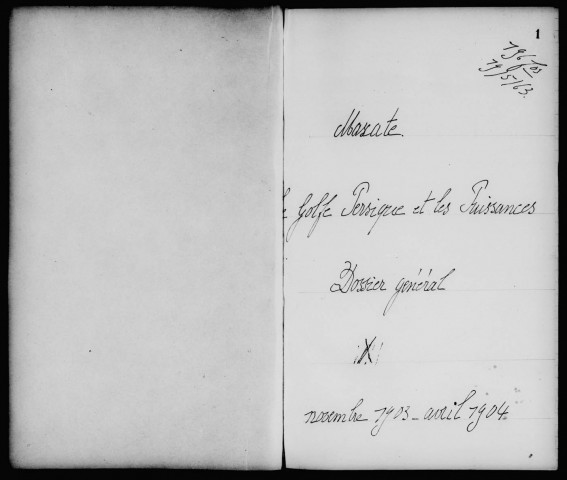 1
196 fos
19/5/63.
Mascate.
Le Golfe Persique et les Puissances
Dossier général
novembre 1903 - avril 1904.